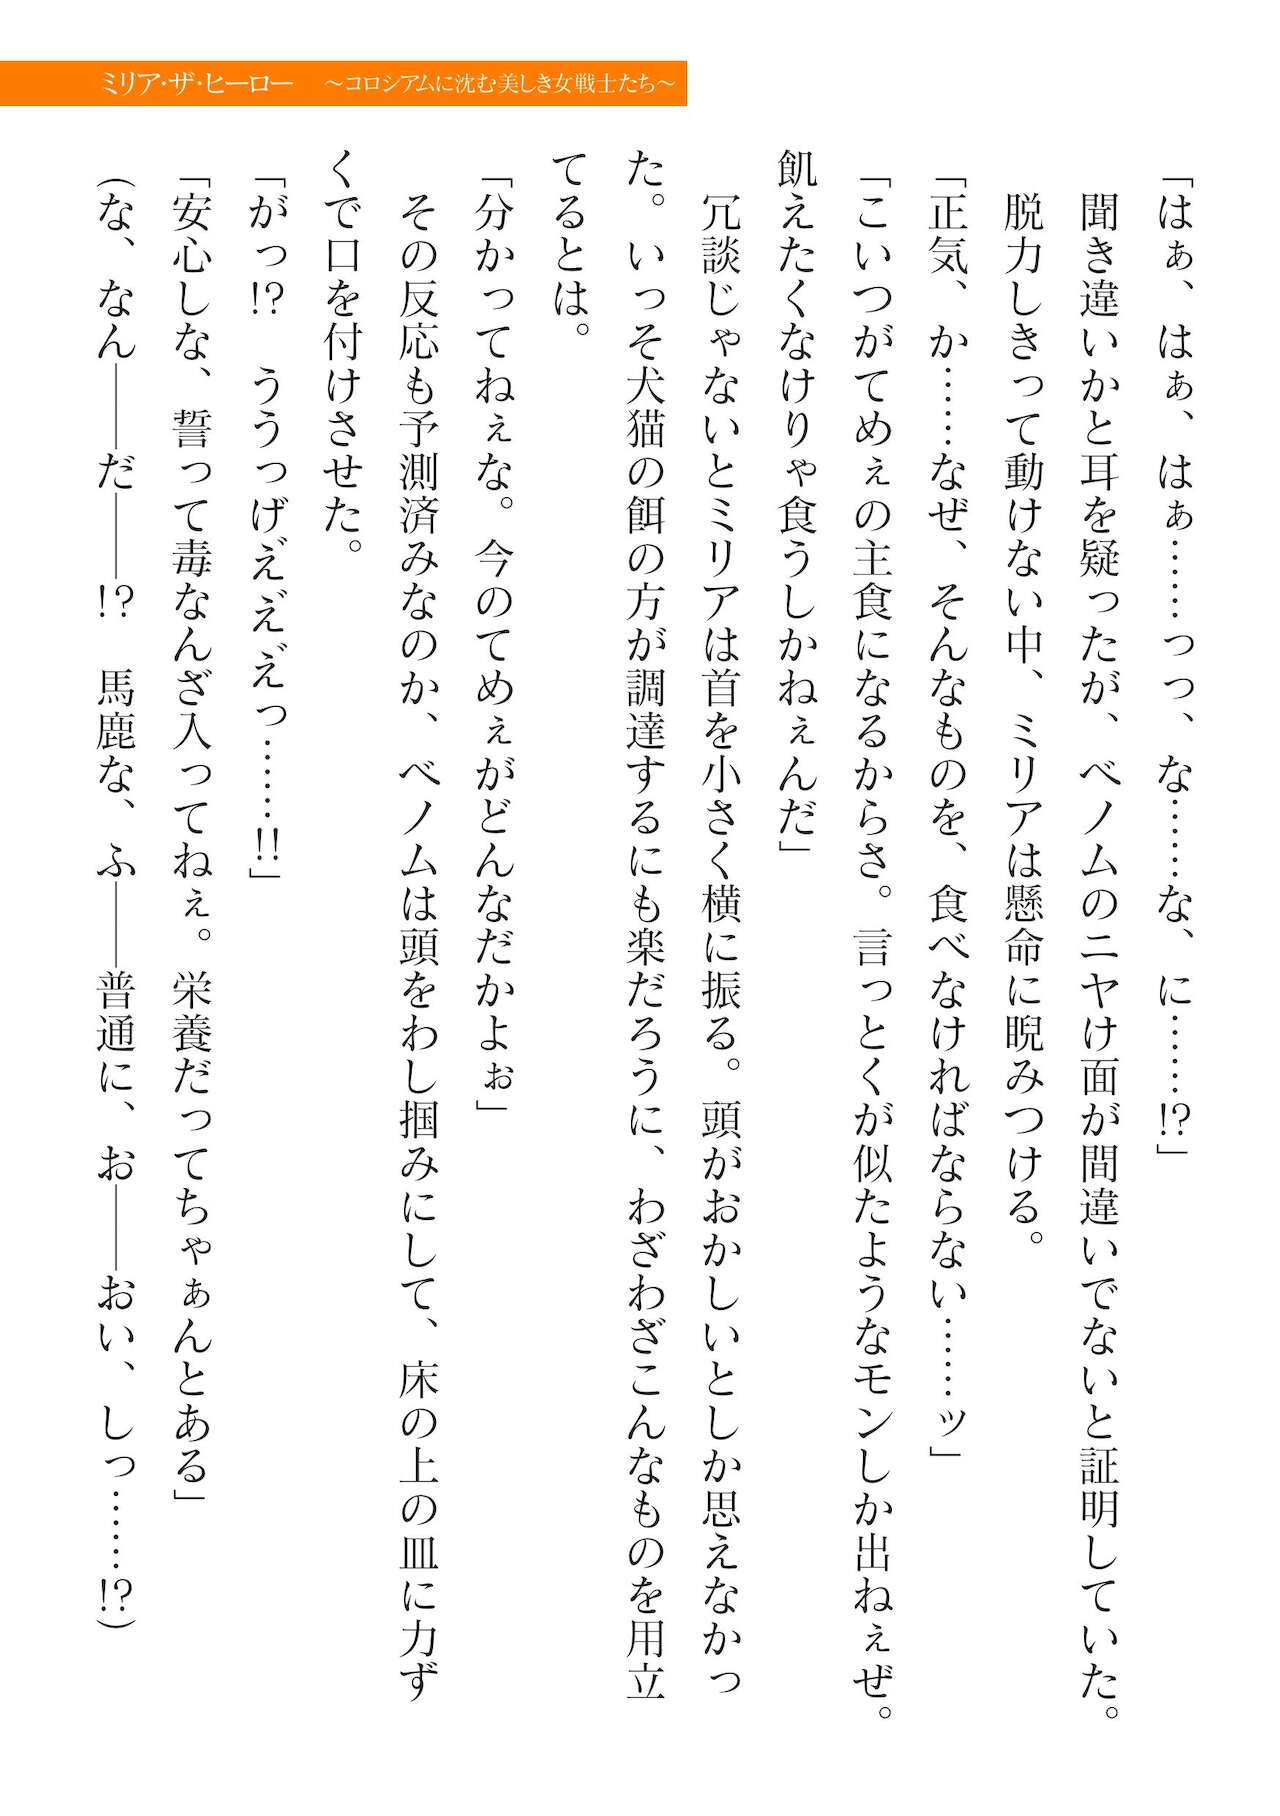 ミリア・ザ・ヒーロー　～コロシアムに沈む美しき女戦士たち～
「はぁ、はぁ、はぁ……っっ、な……な、に……!?」
　聞き違いかと耳を疑ったが、ベノムのニヤけ面が間違いでないと証明していた。
　脱力しきって動けない中、ミリアは懸命に睨みつける。
「正気、か……なぜ、そんなものを、食べなければならない……ッ」
「こいつがてめぇの主食になるからさ。言っとくが似たようなモンしか出ねぇぜ。
飢えたくなけりゃ食うしかねぇんだ」
　冗談じゃないとミリアは首を小さく横に振る。頭がおかしいとしか思えなかっ
た。いっそ犬猫の餌の方が調達するにも楽だろうに、わざわざこんなものを用立
てるとは。
「分かってねぇな。今のてめぇがどんなだかよぉ」
　その反応も予測済みなのか、ベノムは頭をわし掴みにして、床の上の皿に力ず
くで口を付けさせた。
「がっ!?　ううっげぇ゛ぇ゛ぇ゛っ……!!」
「安心しな、誓って毒なんざ入ってねぇ。栄養だってちゃぁんとある」
（な、なん――だ――!?　馬鹿な、ふ――普通に、お――おい、しっ……!?）